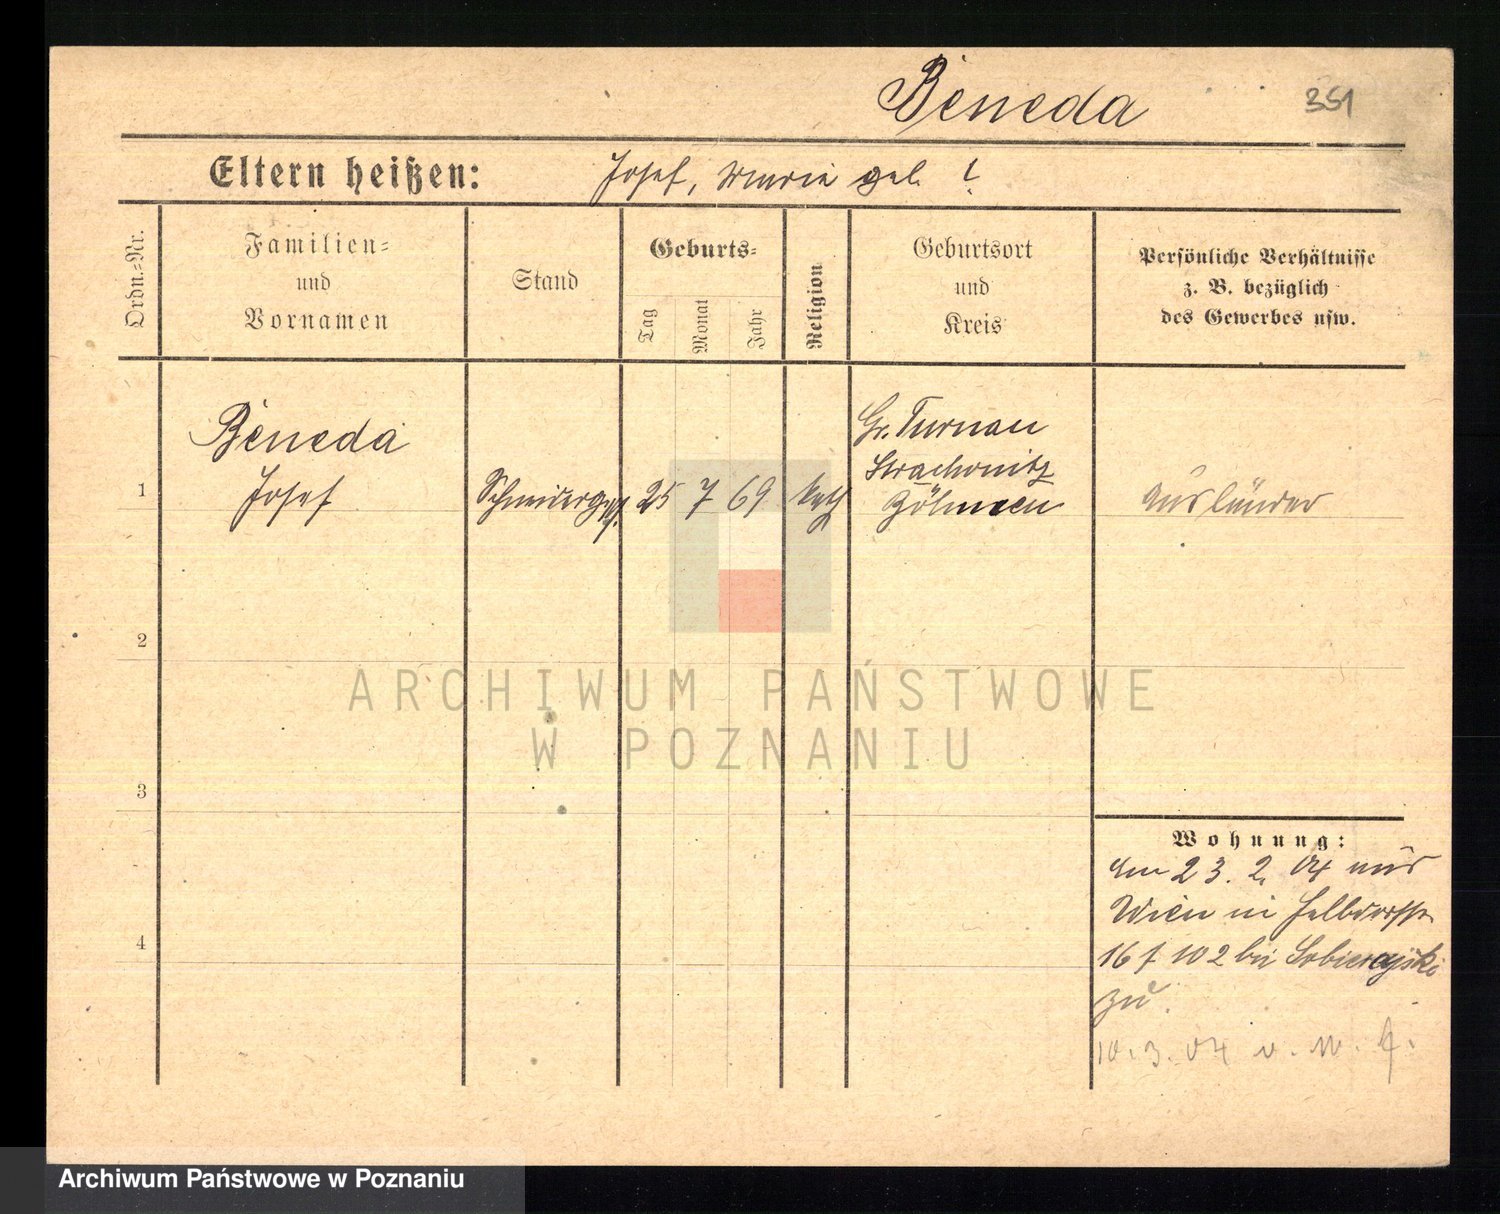 Beneda
351
Eltern heißen: Josef, Marie geb. ?
Ordn.-Nr.
Familien-
und
Vornamen
Stand
Geburts-
Tag
Monat
Jahr
Religion
Geburtsort
und
Kreis
Persönliche Verhältnisse
z. B. bezüglich
des Gewerbes usw.
1
Beneda
Josef
Schneiderges.
25 7 69
kath
Gr. Turnau
Strachonitz
Böhmen
Ausländer
2
3
4
Wohnung:
Am 23. 2. 04 aus
Wien in
16 f 102 bei
zu.
10. 3. 04 v. W.
ARCHIWUM PAŃSTWOWE
W POZNANIU
Archiwum Państwowe w Poznaniu